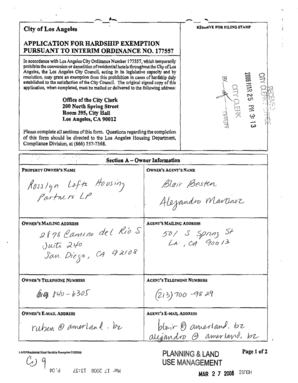 City of Los Angeles
RESERVE FOR FILING STAMP
APPLICATION FOR HARDSHIP EXEMPTION
PURSUANT TO INTERIM ORDINANCE NO. 177557
In accordance with Los Angeles City Ordinance Number 177557, which temporarily
prohibits the conversion or demolition of residential hotels throughout the City of Los
Angeles, the Los Angeles City Council, acting in its legislative capacity and by
resolution, may grant an exemption from this prohibition in cases of hardship duly
established to the satisfaction of the City Council. The original signed copy of this
application, when completed, must be mailed or delivered to the following address:
Office of the City Clerk
200 North Spring Street
Room 395, City Hall
Los Angeles, CA 90012
Please complete all sections of this form. Questions regarding the completion
of this form should be directed to the Los Angeles Housing Department,
Compliance Division, at (866) 557-7368.
2008 MAR 25 PM 3:13
CITY CLERK
BY
DEPUTY
Section A – Owner Information
PROPERTY OWNER'S NAME
OWNER'S AGENT'S NAME
Rosslyn Lofts Housing
Partners LP
Blair Besten
Alejandro Martinez
OWNER'S MAILING ADDRESS
AGENT'S MAILING ADDRESS
2878 Camino del Rio S
Suite 240
San Diego, CA 92108
501 S Spring St
LA, CA 90013
OWNER'S TELEPHONE NUMBERS
AGENT'S TELEPHONE NUMBERS
840-6305
(213) 700-9829
OWNER'S E-MAIL ADDRESS
AGENT'S E-MAIL ADDRESS
ruben @ amerland.bz
blair @ amerland.bz
alejandro @ amerland.bz
PLANNING & LAND
USE MANAGEMENT
Page 1 of 2
MAR 27 2008